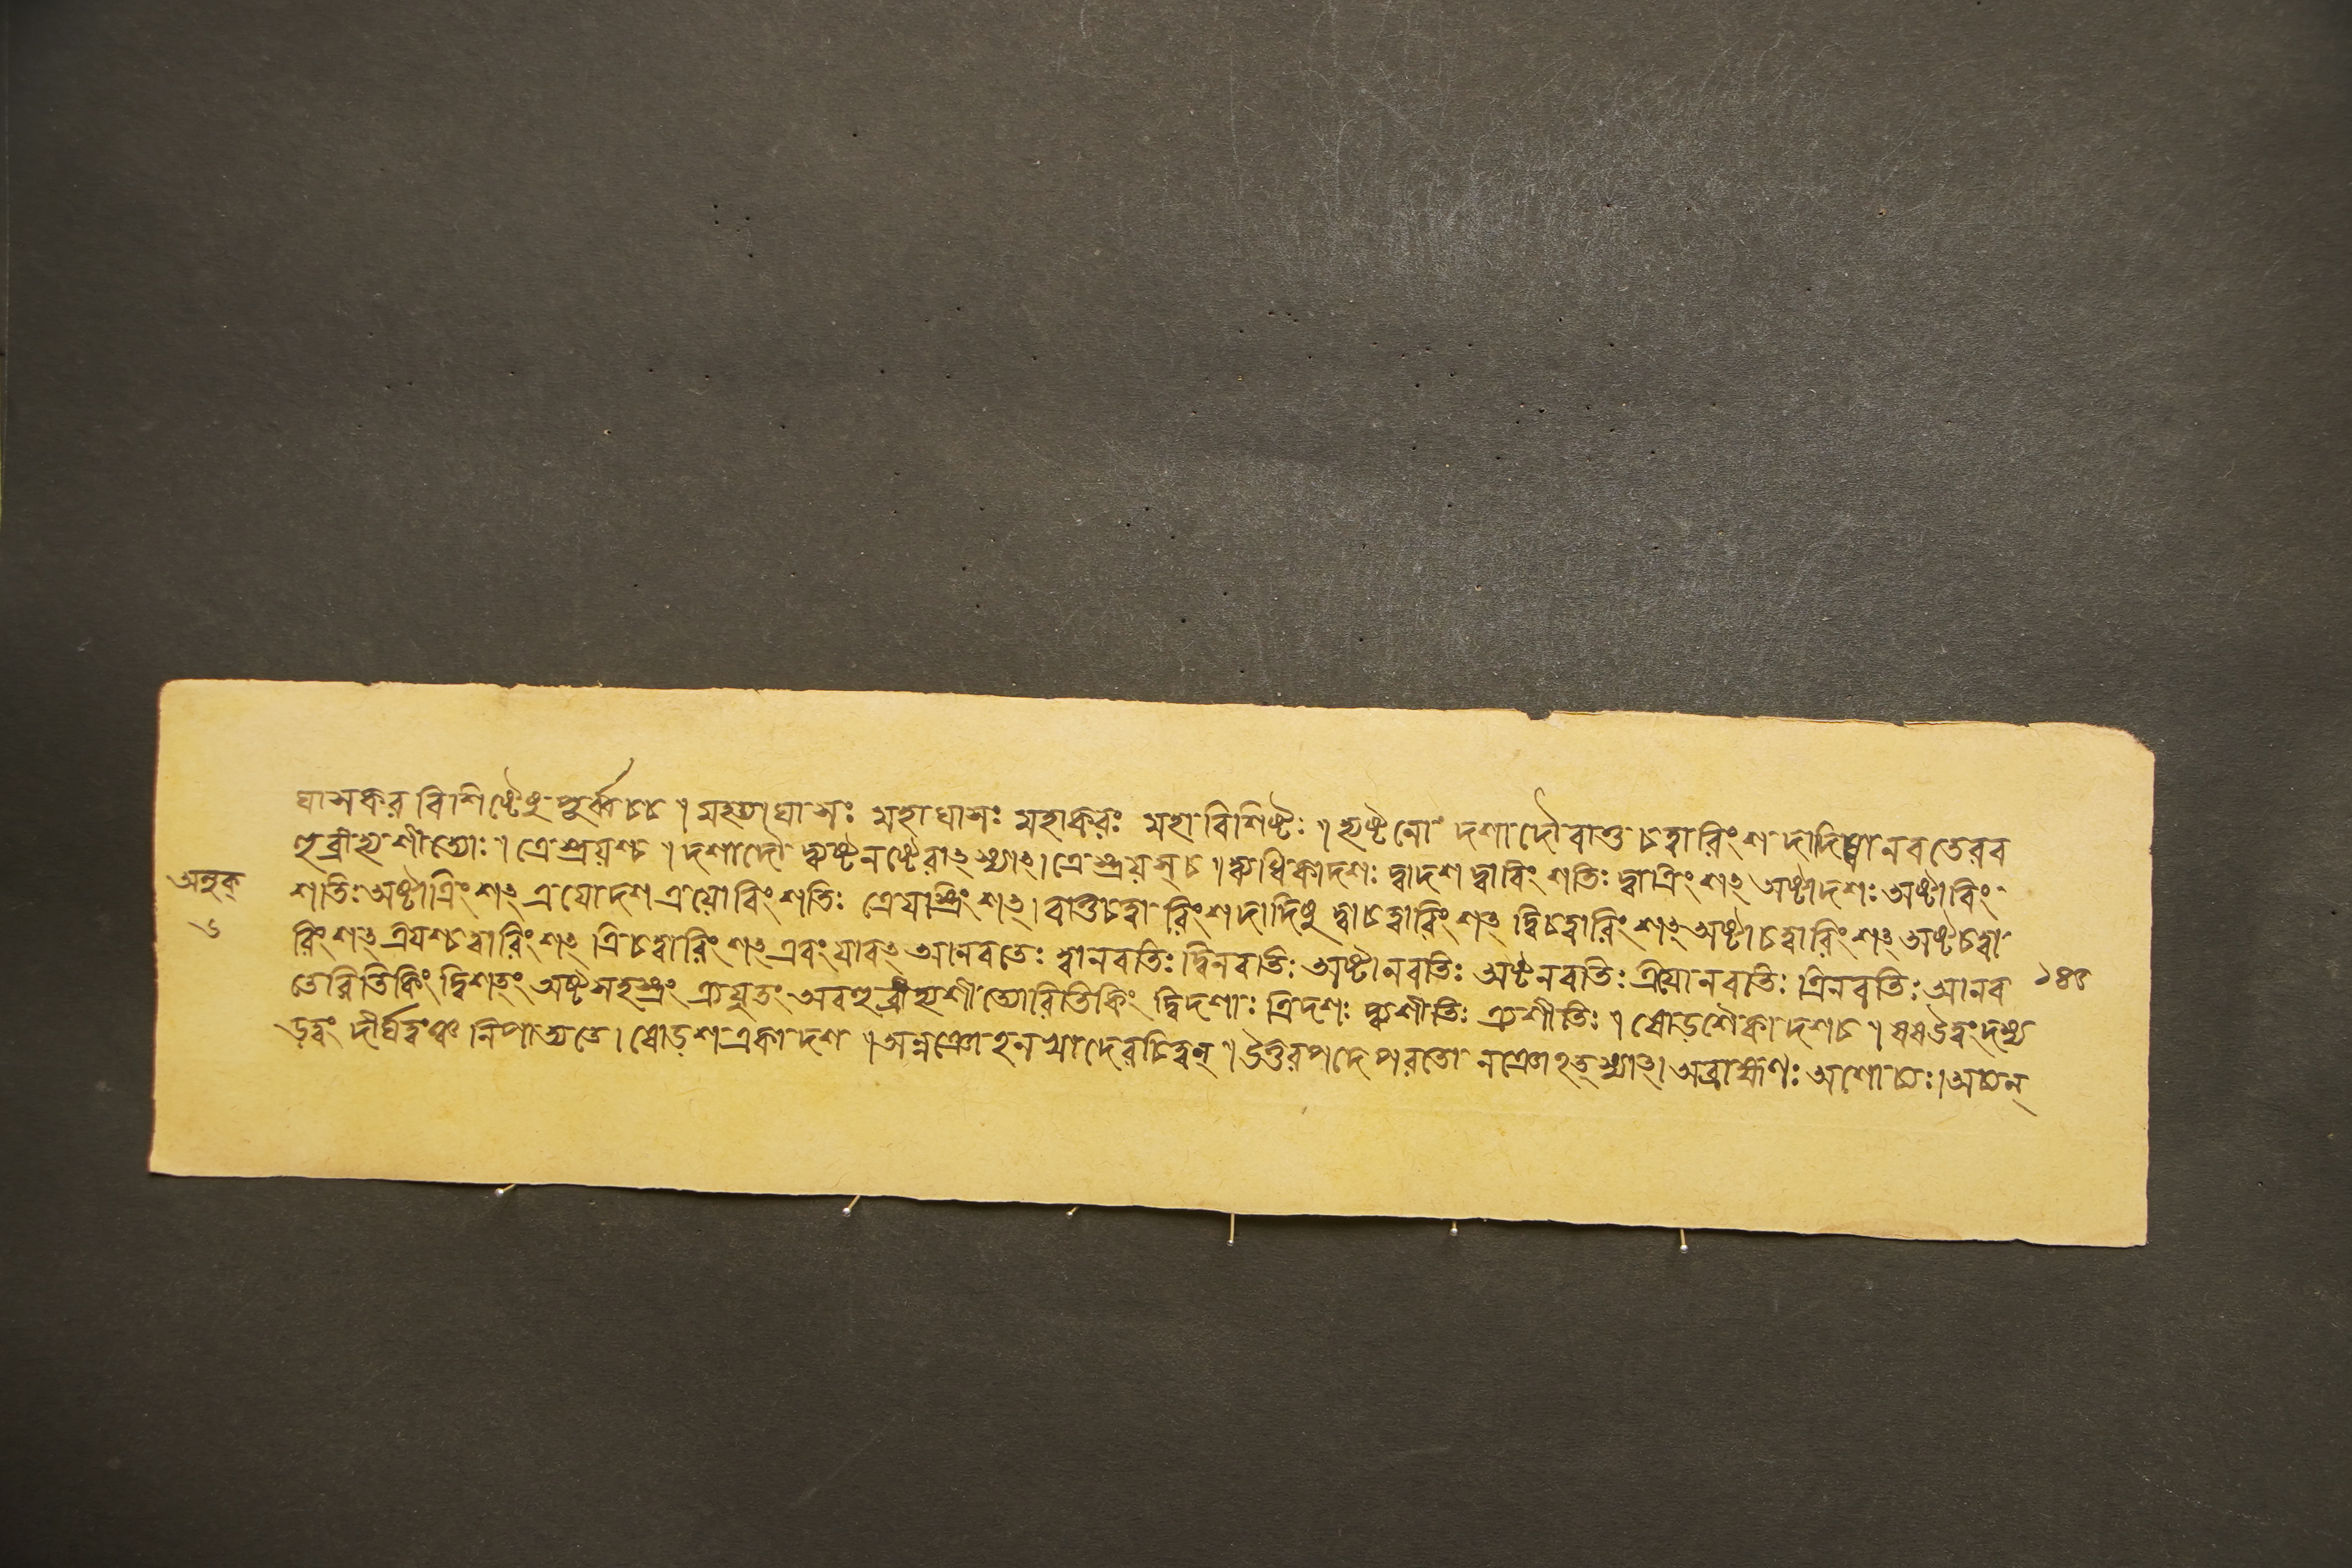 ঘাসকর বিশিষ্টেষু পুর্ব্বচ্চ । মহত্যাঘাসঃ মহাঘাসঃ মহাকরঃ মহাবিশিষ্টঃ । দ্ব্যষ্টনো দশাদৌ বাতু চত্বারিংশদাদিষ্বানবতেরব
হুব্রীহ্যশীত্যোঃ । ত্রেস্ত্রয়শ্চ । দশাদৌ দ্ব্যষ্টনর্ষ্টেরাৎ স্যাৎ । ত্রেস্ত্রয়স্ চ । দ্ব্যধিকাদশঃ দ্বাদশ দ্বাবিংশতিঃ দ্বাত্রিংশৎ অষ্টাদশঃ অষ্টাবিং
অলুক্
৬
শতিঃ অষ্টাত্রিংশৎ ত্রযোদশ ত্রয়োবিংশতিঃ ত্রেযাস্ত্রিংশৎ । বাতুচত্বারিংশদাদিষু দ্বাচত্বারিংশৎ দ্বিচত্বারিংশৎ অষ্টাচত্বারিংশৎ অষ্টচত্বা
রিংশৎ ত্রিযশ্চত্বারিংশৎ ত্রিচত্বারিংশৎ এবং যাবৎ আনবতেঃ দ্বানবতিঃ দ্বিনবতিঃ অষ্টানবতিঃ অষ্টনবতিঃ ত্রয়োনবতিঃ ত্রিনবতিঃ আনব
১৪৫
তেরিতিকিং দ্বিশতং অষ্টসহস্রং ত্র্যযুতং অবহুব্রীহ্যশীত্যোরিতিকিং দ্বিদশাঃ ত্রিদশঃ দ্ব্যশীতিঃ ত্র্যশীতিঃ । ষোড়শৈকাদশচ । ষষউত্বংদস্য
ড়ত্বং দীর্ঘত্বঞ্চ নিপাত্যতে । ষোড়শ একাদশ । অন্নঞোহনখাদেরচিত্বন্ । উত্তরপদে পরতো নঞোহৎ স্যাৎ । অব্রাহ্মণঃ অশোচঃ । অচন্